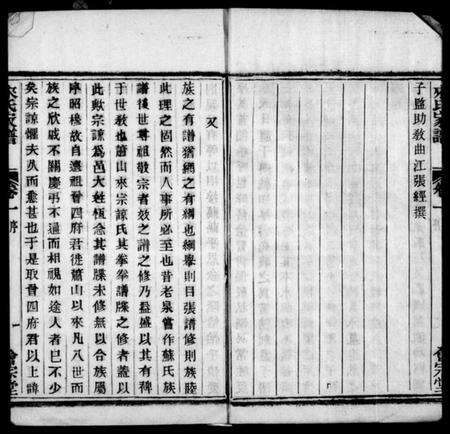 子監助教曲江張經撰
來氏家譜
卷一
序
會宗堂
又
族之有譜猶網之有綱也綱張則目張譜修則族睦
此理之固然而人事所必至也昔老泉嘗作蘇氏族
譜後世尊祖敬宗者效之譜之修乃益盛以其有裨
于世教也蕭山來宗諒氏其拳拳譜牒之修者蓋以
此歟宗諒爲邑大姓恆念其譜牒未修無以合族屬
序昭穆故自遷祖晉四府君徙蕭山以來凡八世而
族之欣戚不關慶弔不通而相視如途人者已不少
矣宗諒懼夫久而愈甚也于是取晉四府君以上諱
來氏家譜
卷一
序
一
會宗堂